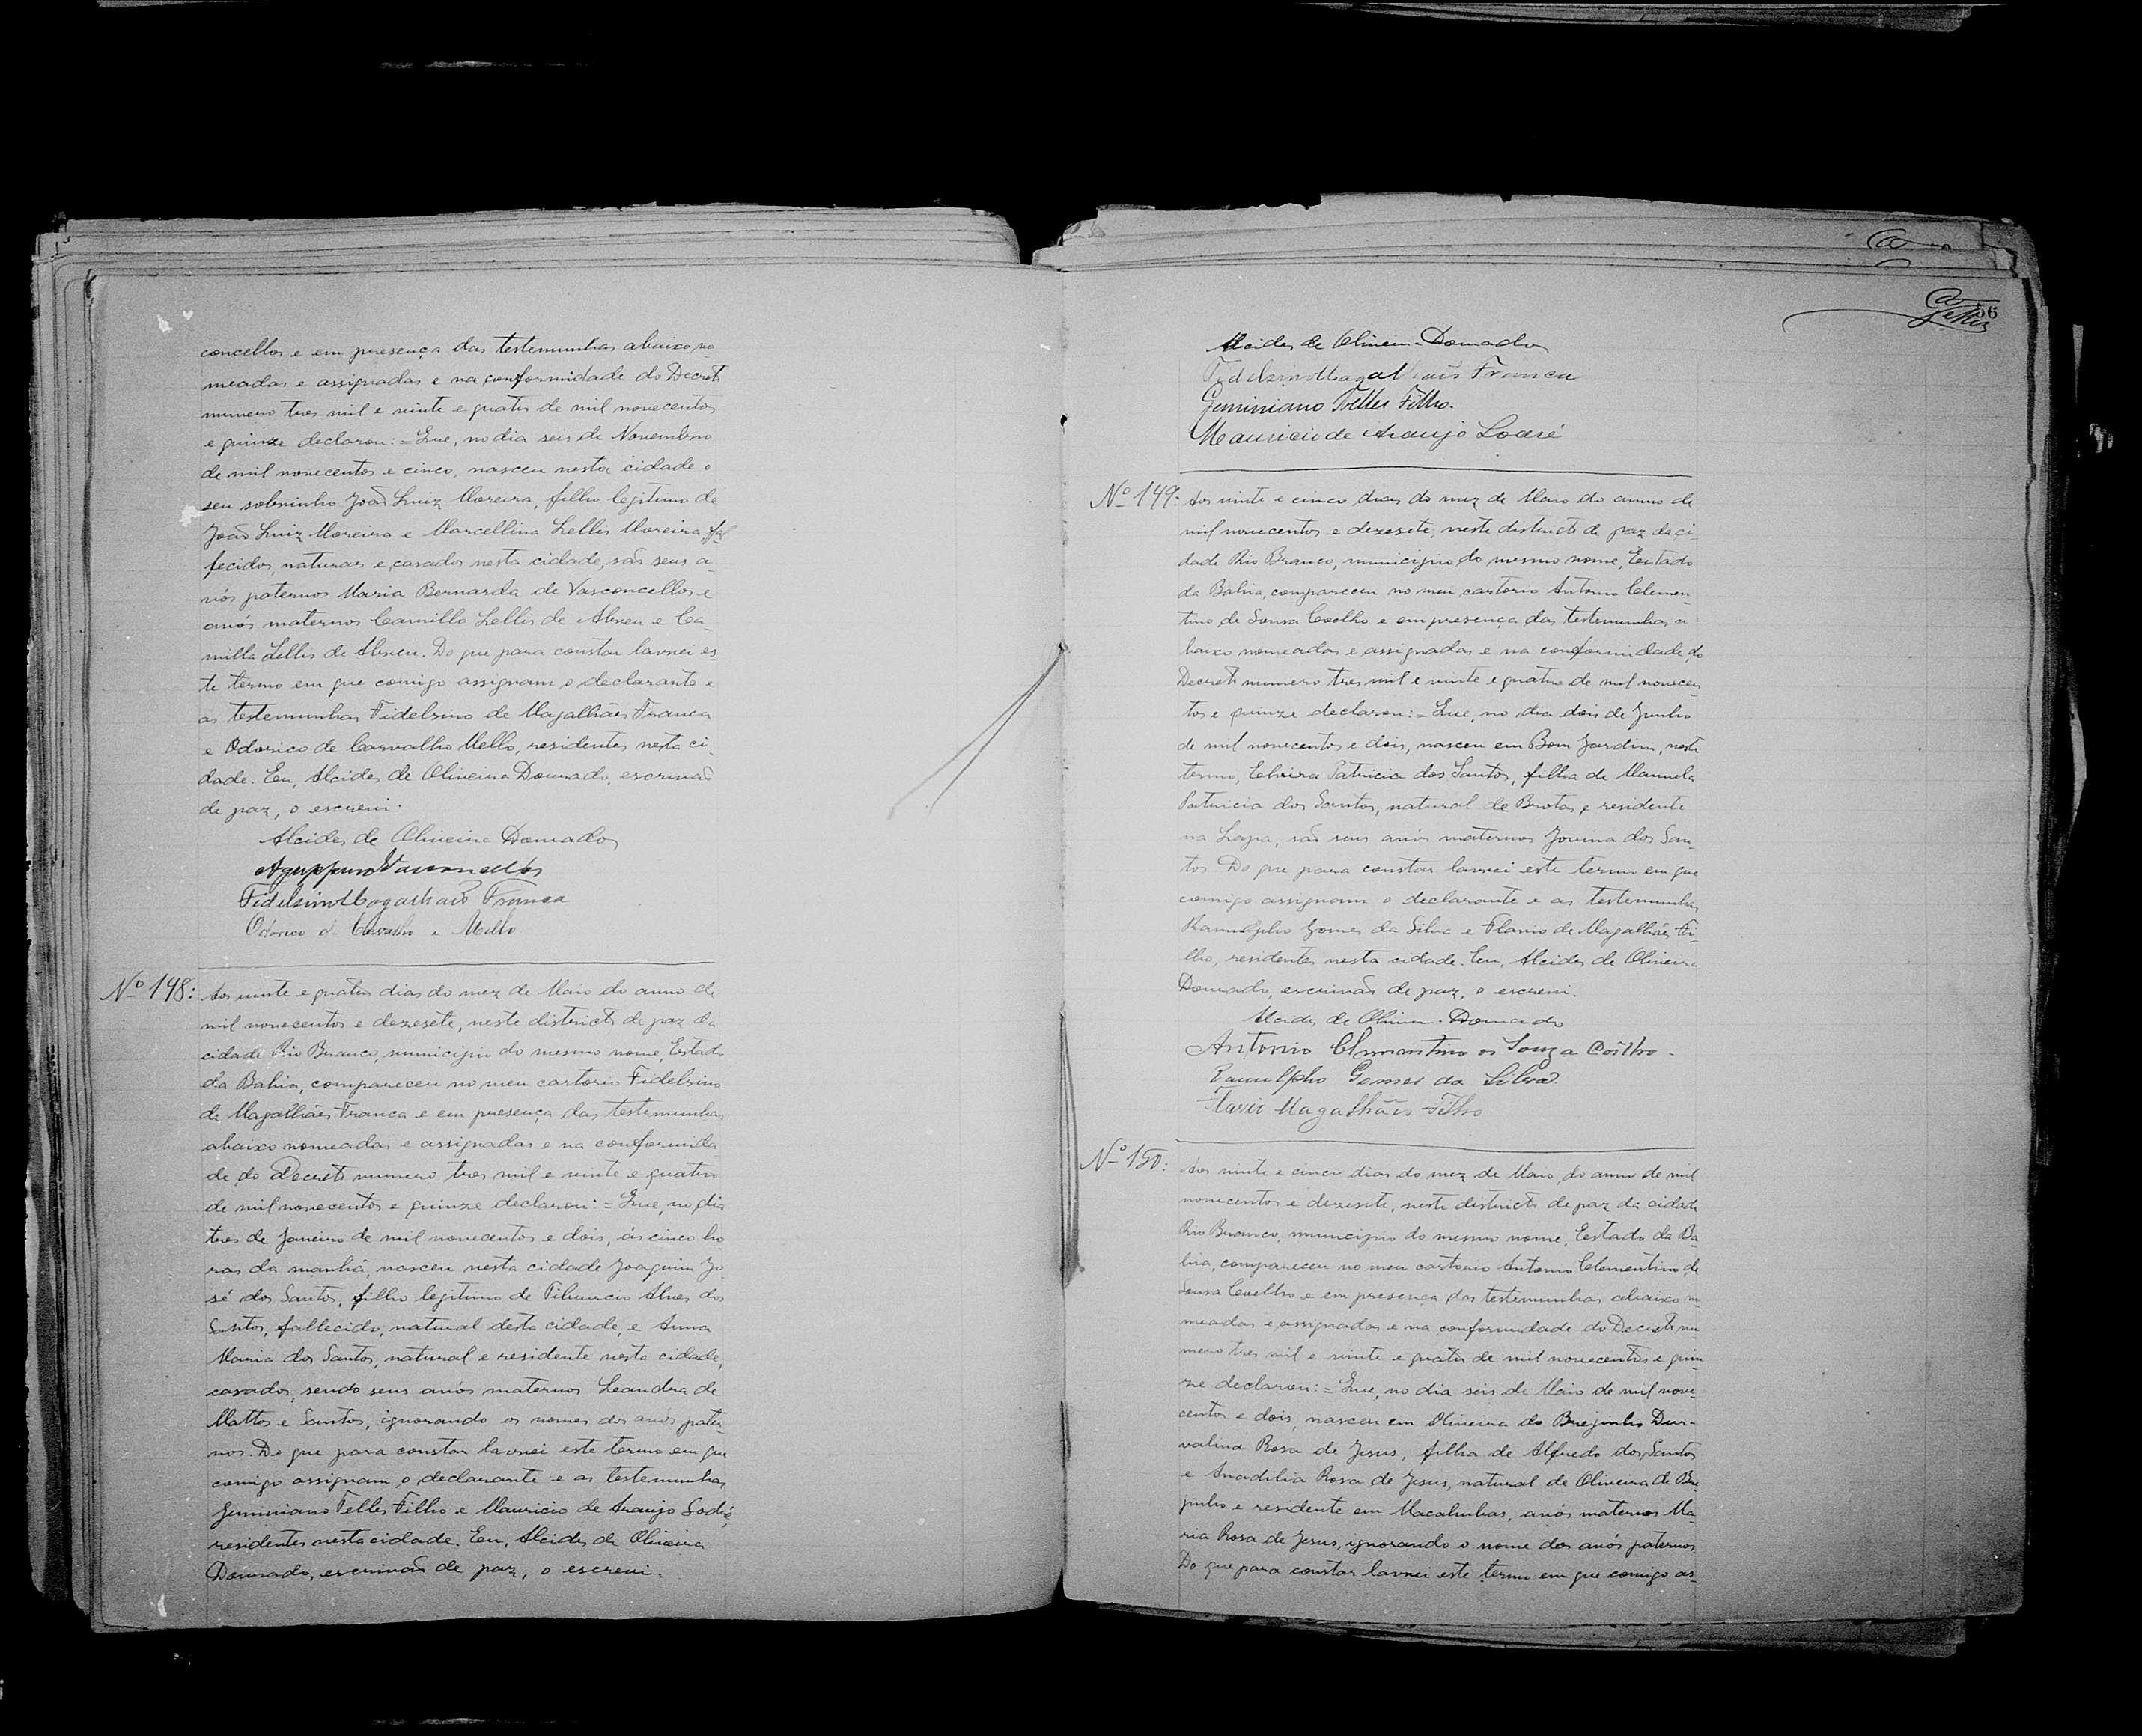 concellos e em presença das testemunhas abaixo no
meadas e assignadas e na conformidade do Decreto
numero tres mil e vinte e quatro de mil novecentos
e quinze declarou: = Que, no dia seis de Novembro
de mil novecentos e cinco, nasceu nesta cidade o
seu sobrinho João Luiz Moreira, filho legitimo de
João Luiz Moreira e Marcellina Lellis Moreira, fal
lecidos, naturaes e casados nesta cidade, são seus a-
vós paternos Maria Bernarda de Vasconcellos e
avós maternos Camillo Lellis de Abreu e Ca-
milla Lellis de Abreu. Do que para constar lavrei es-
te termo em que comigo assignam o declarante e
as testemunhas Fidelsino de Magalhães Franca
e Odorico de Carvalho Mello, residentes nesta ci-
dade. Eu, Alcides de Oliveira Dourado, escrivão
de paz, o escrevi.
Alcides de Oliveira Dourado
Vasconcellos
Fidelsino Magalhães Franca
Odorico de Carvalho e Mello
No 148: Aos vinte e quatro dias do mez de Maio do anno de
mil novecentos e dezesete, neste districto de paz da
cidade Rio Branco, municipio do mesmo nome, Estado
da Bahia, compareceu no meu cartorio Fidelsino
de Magalhães Franca e em presença das testemunhas
abaixo nomeadas e assignadas e na conformida
de do Decreto numero tres mil e vinte e quatro
de mil novecentos e quinze declarou: = Que, no dia
tres de Janeiro de mil novecentos e dois, ás cinco ho
ras da manhã, nasceu nesta cidade Joaquim Jo
sé dos Santos, filho legitimo de Alves dos
Santos, fallecido, natural desta cidade, e Anna
Maria dos Santos, natural e residente nesta cidade,
casados, sendo seus avós maternos Leandra de
Mattos e Santos, ignorando os nomes dos avós pater
nos. Do que para constar lavrei este termo em que
comigo assignam o declarante e as testemunhas
Geminiano Telles Filho e Mauricio de Araujo Sodré,
residentes nesta cidade. Eu, Alcides de Oliveira
Dourado, escrivão de paz, o escrevi.
56
Alcides de Oliveira Dourado
Fidelsino Magalhães Franca
Geminiano Telles Filho.
Mauricio de Araujo Sodré
No 149: Aos vinte e cinco dias do mez de Maio do anno de
mil novecentos e dezesete, neste districto de paz da ci-
dade Rio Branco, municipio do mesmo nome, Estado
da Bahia, compareceu no meu cartorio Antonio Clemen-
tino de Sousa Coelho e em presença das testemunhas a
baixo nomeadas e assignadas e na conformidade do
Decreto numero tres mil e vinte e quatro de mil novecen
tos e quinze declarou: = Que, no dia dois de Junho
de mil novecentos e dois, nasceu em Bom Jardim, neste
termo, Patricia dos Santos, filha de Manuela
Patricia dos Santos, natural de Brotas e residente
na Lapa, são seus avós maternos dos San-
tos. Do que para constar lavrei este termo em que
comigo assignam o declarante e as testemunhas
Ranulpho Gomes da Silva e Flavio de Magalhães Fi-
lho, residentes nesta cidade. Eu, Alcides de Oliveira
Dourado, escrivão de paz, o escrevi.
Alcides de Oliveira Dourado
Antonio Clementino de Souza Coêlho.
Ranulpho Gomes da Silva.
Flavio Magalhães Filho
No 150: Aos vinte e cinco dias do mez de Maio do anno de mil
novecentos e dezesete, neste districto de paz da cidade
Rio Branco, municipio do mesmo nome, Estado da Ba
hia, compareceu no meu cartorio Antonio Clementino de
Sousa Coelho e em presença das testemunhas abaixo no
meadas e assignadas e na conformidade do Decreto nu
mero tres mil e vinte e quatro de mil novecentos e quin
ze declarou: = Que, no dia seis de Maio de mil nove
centos e dois, nasceu em Oliveira do Brejinho Dur-
valina Rosa de Jesus, filha de Alfredo dos Santos
e Anadilia Rosa de Jesus, natural de Oliveira do Bre
jinho e residente em Macahubas, avós maternos Ma
ria Rosa de Jesus, ignorando o nome dos avós paternos
Do que para constar lavrei este termo em que comigo as-